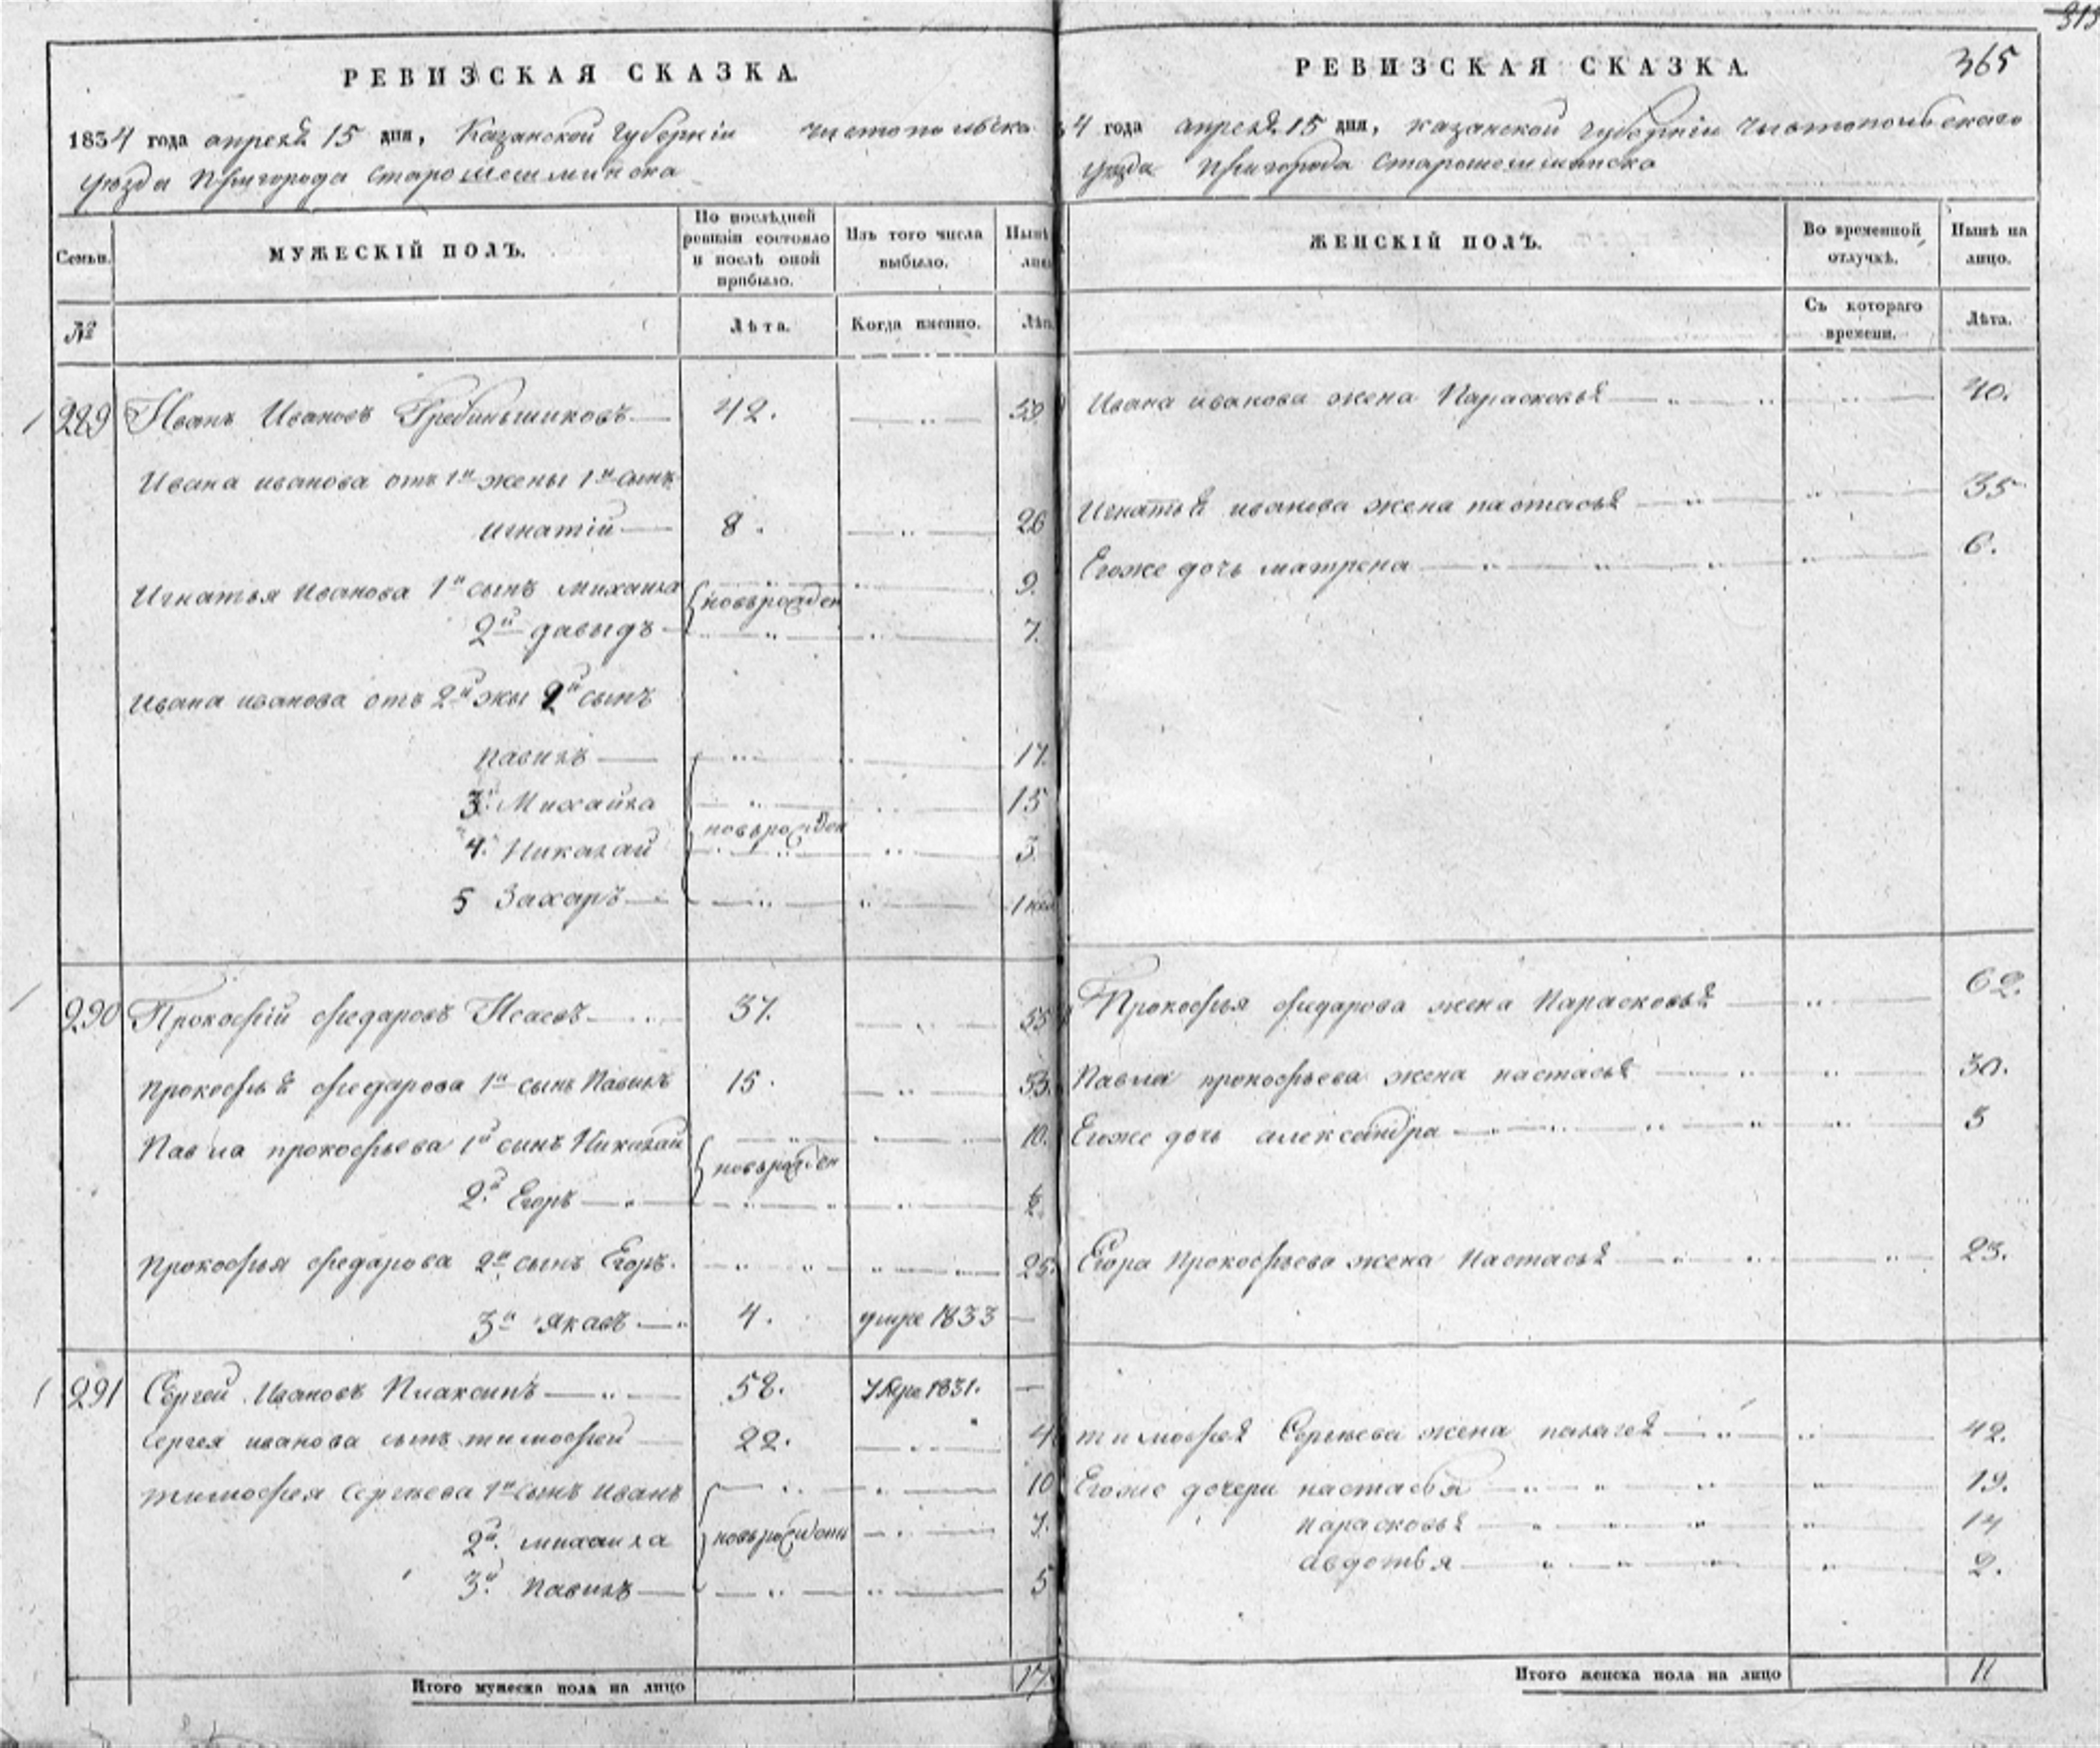 РЕВИЗСКАЯ СКАЗКА.
1834 года апреля 15 дня, Казанской Губернiи чистопольска
уезда Пригорода Старошешминска
Семьи. МУЖЕСКIЙ ПОЛЪ. По послѣдней ревизiи состояло и послѣ оной прибыло. Изъ того числа выбыло. Нынѣ
№ Лѣта. Когда именно. Лѣта
289 Иванъ Ивановъ Гребеньшиковъ 42.
Ивана иванова отъ 1й жены 1й сынъ
игнатiй 8. 26
Игнатья Иванова 1й сынъ михаила новорожден 9.
2й давыдъ 7.
Ивана иванова отъ 2й жы 2й сынъ
павилъ 17.
3. Михайла 15
новорожден
4. Николай 3.
5 Захаръ
290 Прокофiй федаровъ Исаевъ 37. 55
прокофья федарова 1й сынъ Павилъ 15.
Павла прокофьева 1й сынъ Николай 10.
новорожден
2й Егоръ
прокофья федарова 2й сынъ Егоръ. 25.
3й яковъ 4. умре 1833
291 Сергей Ивановъ Плаксинъ 58. Умре 1831.
Сергея иванова сынъ тимофей 22.
тимофея Сергеева 1й сынъ иванъ 10
2й михаила новорожден 7.
3й павилъ 5
Итого мужеска пола на лицо 17.
365
РЕВИЗСКАЯ СКАЗКА.
4 года апреля 15 дня, казанской губернiи чистопольскаго
уезда Пригорода Старошешминска
ЖЕНСКIЙ ПОЛЪ. Во временной отлучкѣ. Нынѣ на лицо.
Съ котораго времени. Лѣта.
Ивана иванова жена Парасковья 40.
Игнатья иванова жена настасья 35
Егоже дочь матрена 6.
Прокофья федарова жена Парасковья 62.
Павла прокофьева жена настасья 30.
Егоже дочь александра 3
Егора Прокофьева жена Настасья 23.
тимофея Сергеева жена палагея 42.
Егоже дочери настасья 19.
парасковья 14
авдотья 2.
Итого женска пола на лицо 11